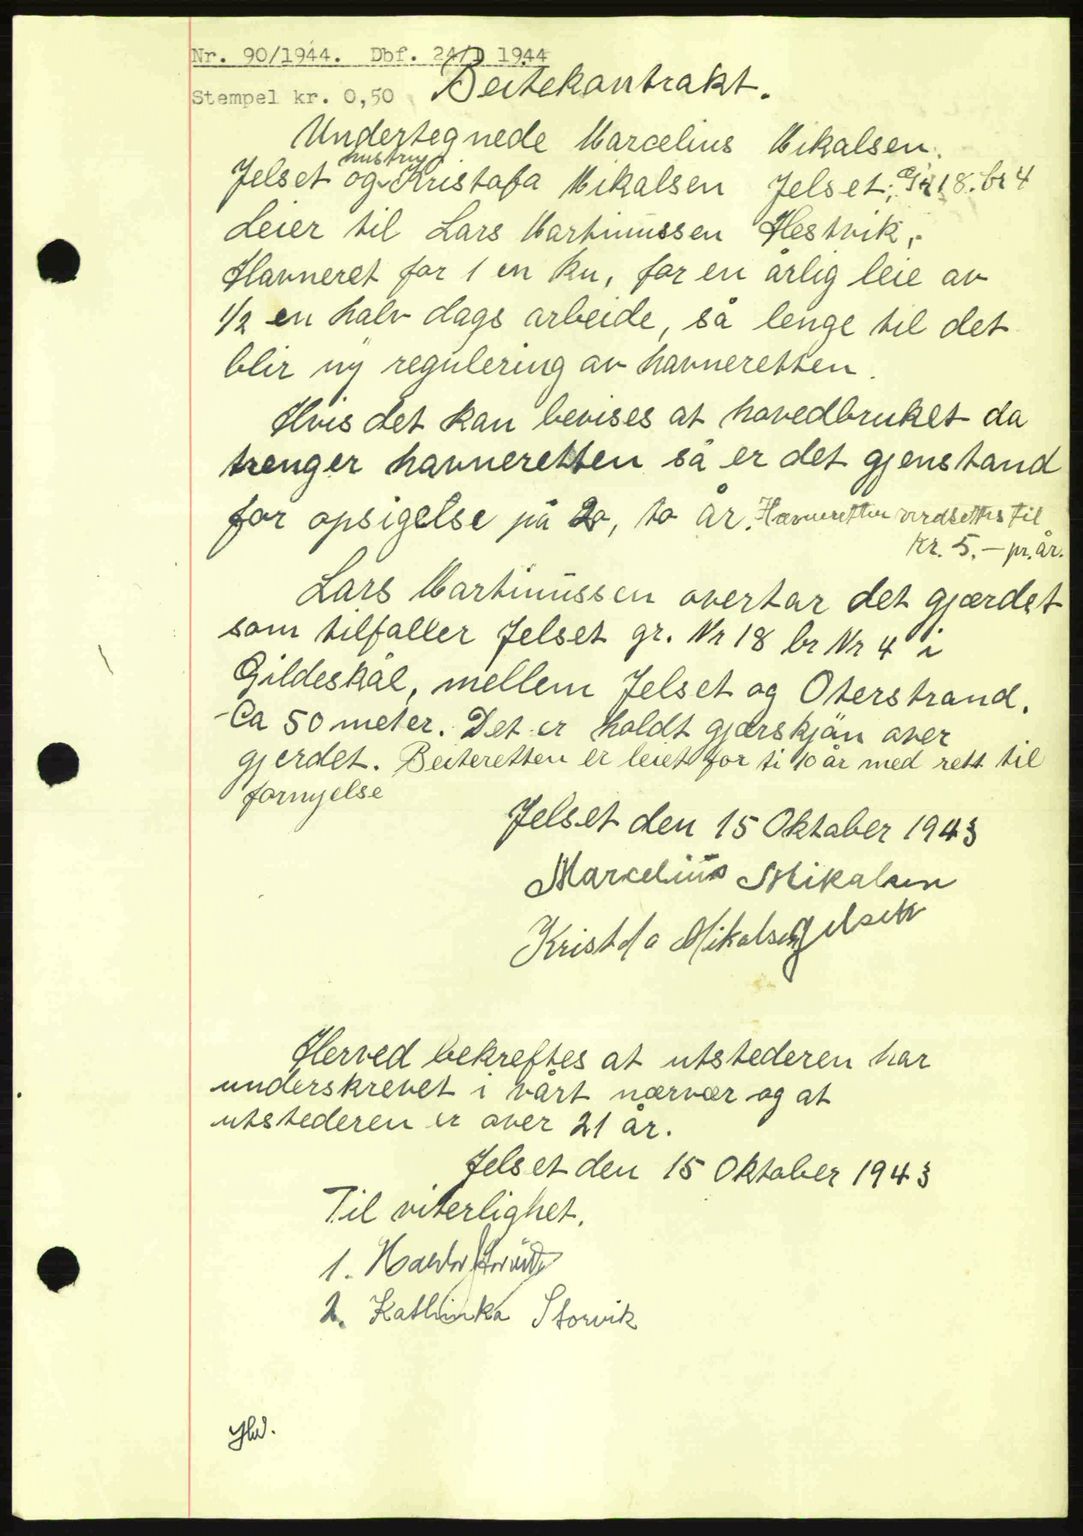 Nr. 90/1944. Dbf. 24/1 1944
Stempel kr. 0,50
Beitekontrakt.
Undertegnede Marcelius Mikalsen.
hustru
Jelset og Kristofa Mikalsen Jelset; Gr 18. br 4
Leier til Lars Martinussen Hestvik,
Havneret for 1 en ku, for en årlig leie av
1/2 en halv dags arbeide, så lenge til det
blir ny regulering av havneretten.
Hvis det kan bevises at hovedbruket da
trenger havneretten så er det gjenstand
for opsigelse på 2, to år. Havneretten verdsettes til
kr. 5.— pr. år.
Lars Martinussen overtar det gjærdet
som tilfaller Jelset gr. Nr 18 br Nr 4 i
Gildeskål, mellem Jelset og Oterstrand.
Ca 50 meter. Det er holdt gjærskjön over
gjerdet. Beiteretten er leiet for ti 10 år med rett til
fornyelse
Jelset den 15 Oktober 1943
Marcelius Mikalsen
Kristofa Mikalsen Jelset
Herved bekreftes at utstederen har
underskrevet i vårt nærvær og at
utstederen er over 21 år.
Jelset den 15 Oktober 1943
Til viterlighet.
1. Storvik
2. Kathinka Storvik